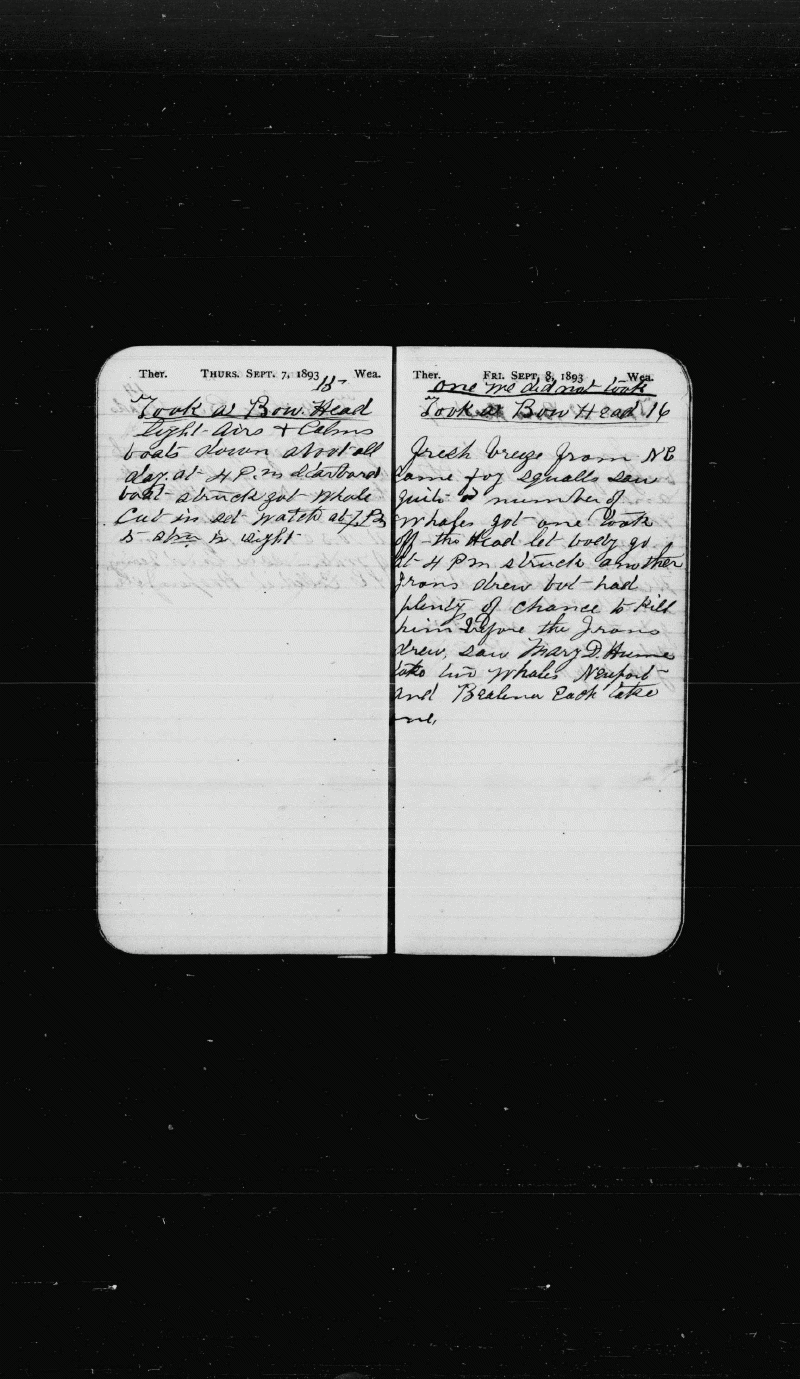 Ther. THURS. SEPT. 7, 1893 Wea.
15
Took a Bow Head
light airs + Calms
boats down about all
day. at 4 P.m Starboard
boat struck got whale
Cut in set watch at 7 P.m
5 str in sight
Ther. FRI. SEPT. 8, 1893 Wea.
one we did not took
Took a Bow Head 16
fresh breeze from NE
Some fog squalls saw
quite a number of
Whales got one took
off the Head let body go
at 4 P m struck another
Irons drew but had
plenty of chance to kill
him before the Irons
drew, saw Mary D Hume
take two whales Newport
and Bealena Each take
one,